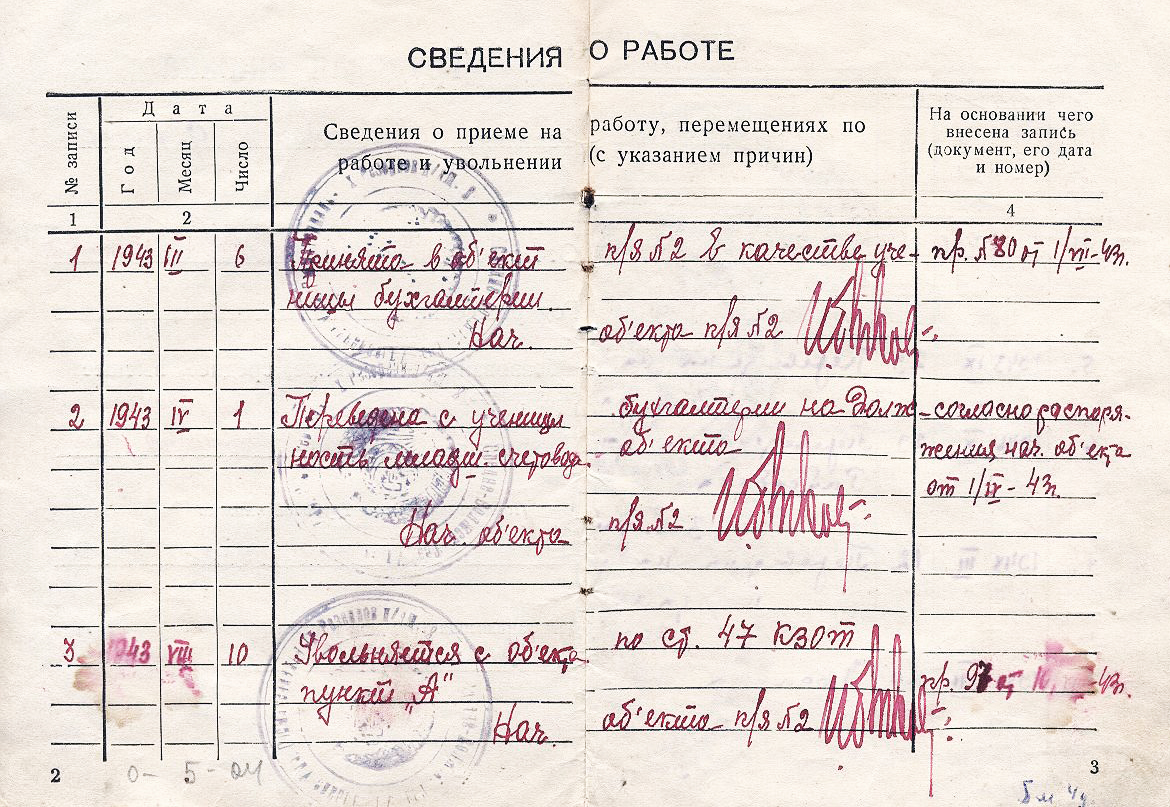 СВЕДЕНИЯ О РАБОТЕ
№ записи
Дата
Год
Месяц
Число
Сведения о приеме на работу, перемещениях по
работе и увольнении (с указанием причин)
На основании чего
внесена запись
(документ, его дата
и номер)
1 2 4
1 1943 III 6 Принята в об'ект п/я №2 в качестве уче- пр. №80 от
ницы бухгалтерии.
Нач. об'екта п/я №2
2 1943 IV 1 Переведена с ученицы бухгалтерии на долж- согласно распоря-
ность младш. счетовода об'екта жения нач. об'екта
от 1/IV-43г.
Нач. об'екта п/я №2
3 1943 VIII 10 Увольняется с об'екта по ст. 47 КЗОТ
пункт „А" пр. от 43г.
Нач. об'екта п/я №2
2 3
0-5-04